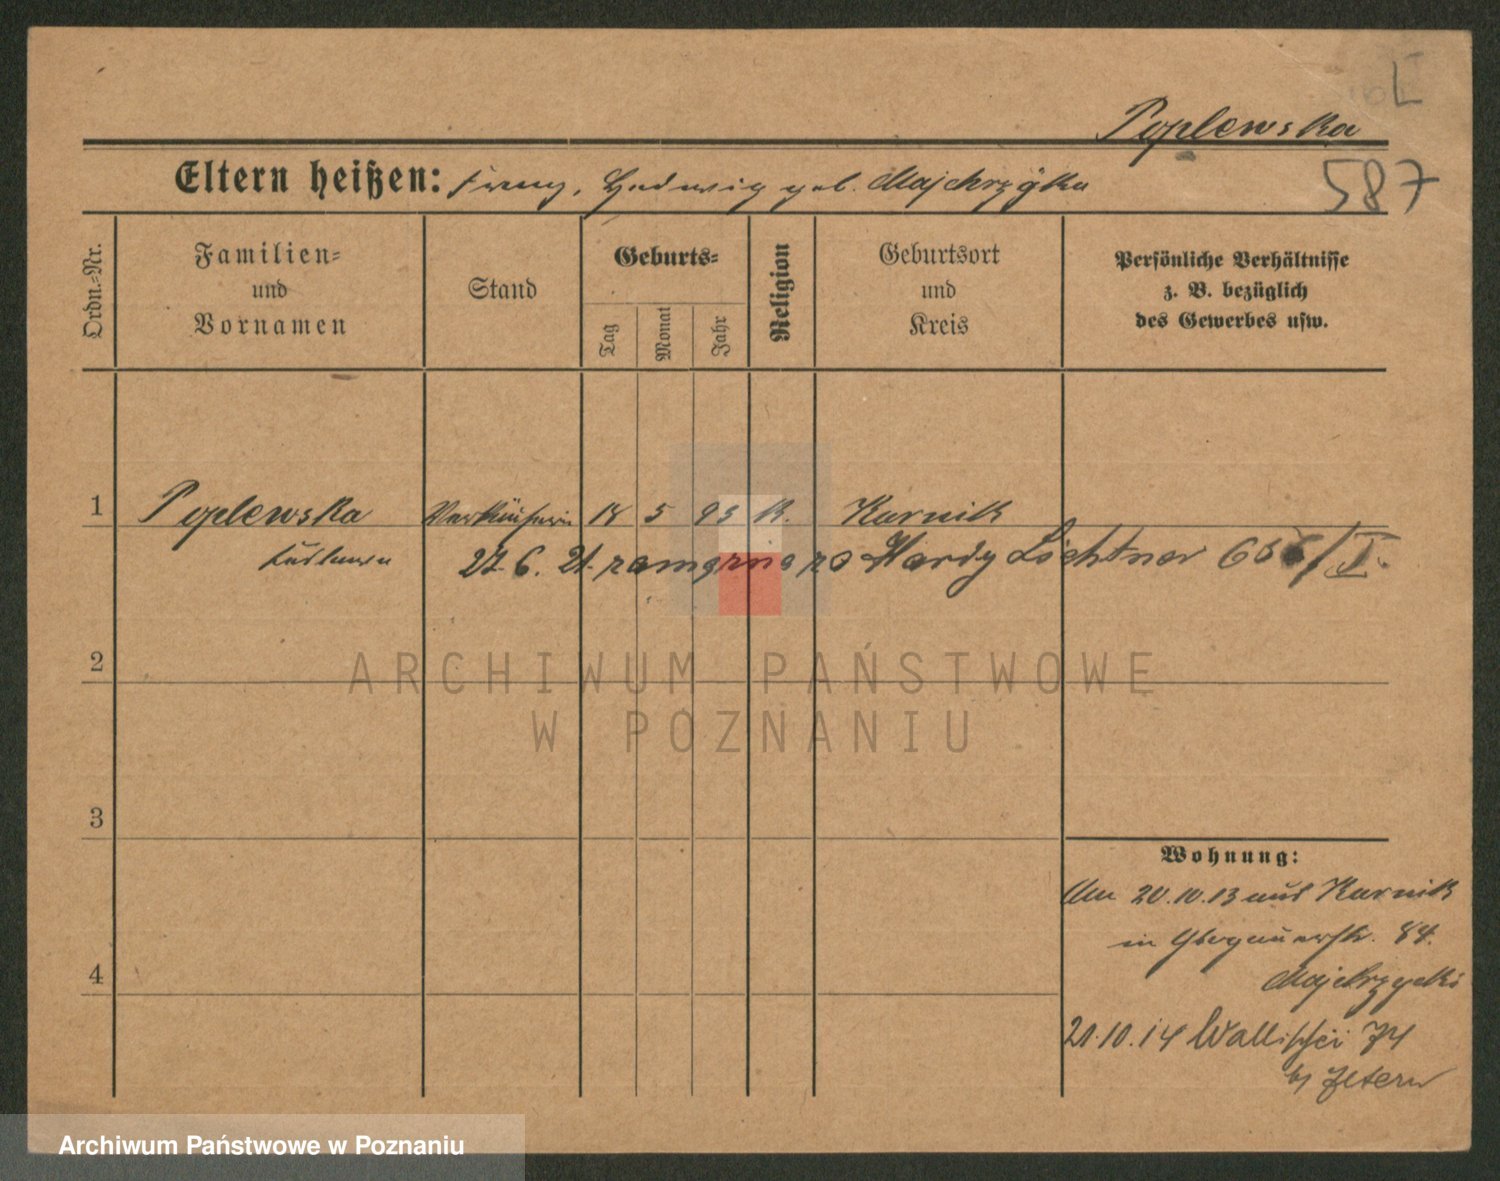 L
Poplewska
Eltern heißen: Franz, Hedwig geb. Majchrzycka
587
Ordn.-Nr.
Familien-
und
Vornamen
Stand
Geburts-
Tag
Monat
Jahr
Religion
Geburtsort
und
Kreis
Persönliche Verhältnisse
z. B. bezüglich
des Gewerbes usw.
1
Poplewska Verkäuferin 18 5 93 K. Kurnik
27. 6. 21. Lichtner /I.
2
ARCHIWUM PAŃSTWOWE
W POZNANIU
3
Wohnung:
Am 20.10.13 aus Kurnik
in Glogauerstr. 84.
4
Majchrzycki
21.10.14 Wallischei 74
b/ Eltern
Archiwum Państwowe w Poznaniu